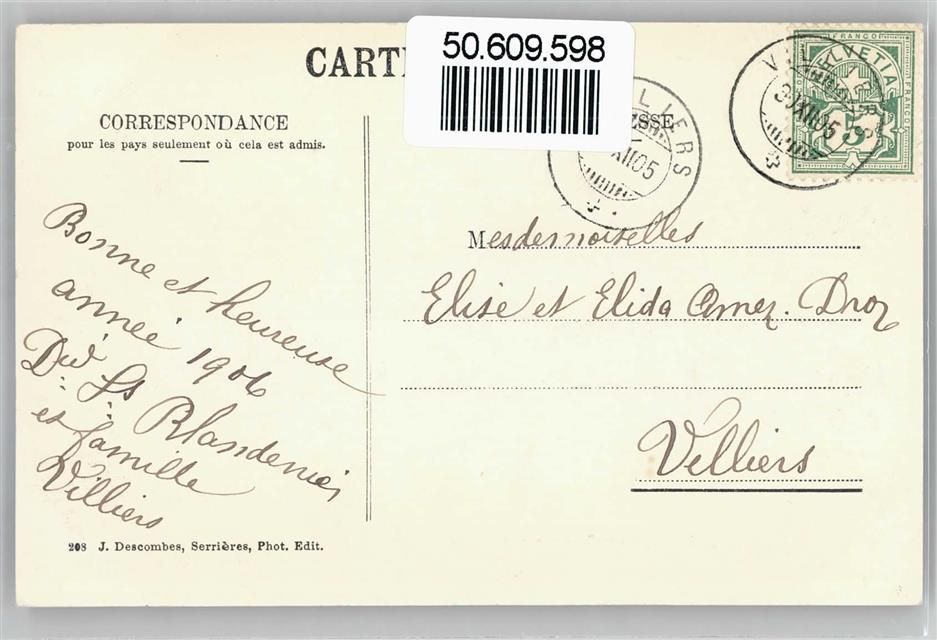 50.609.598
CARTE
CORRESPONDANCE
pour les pays seulement où cela est admis.
Bonne et heureuse
année 1906
Ls Blandenier
et famille
Villiers
208 J. Descombes, Serrières, Phot. Edit.
VILLIERS
XII 05
FRANCO
HELVETIA
FRANCO
5
XII 05
Mesdemoiselles
Elise et Elida Amez. Droz
Villiers